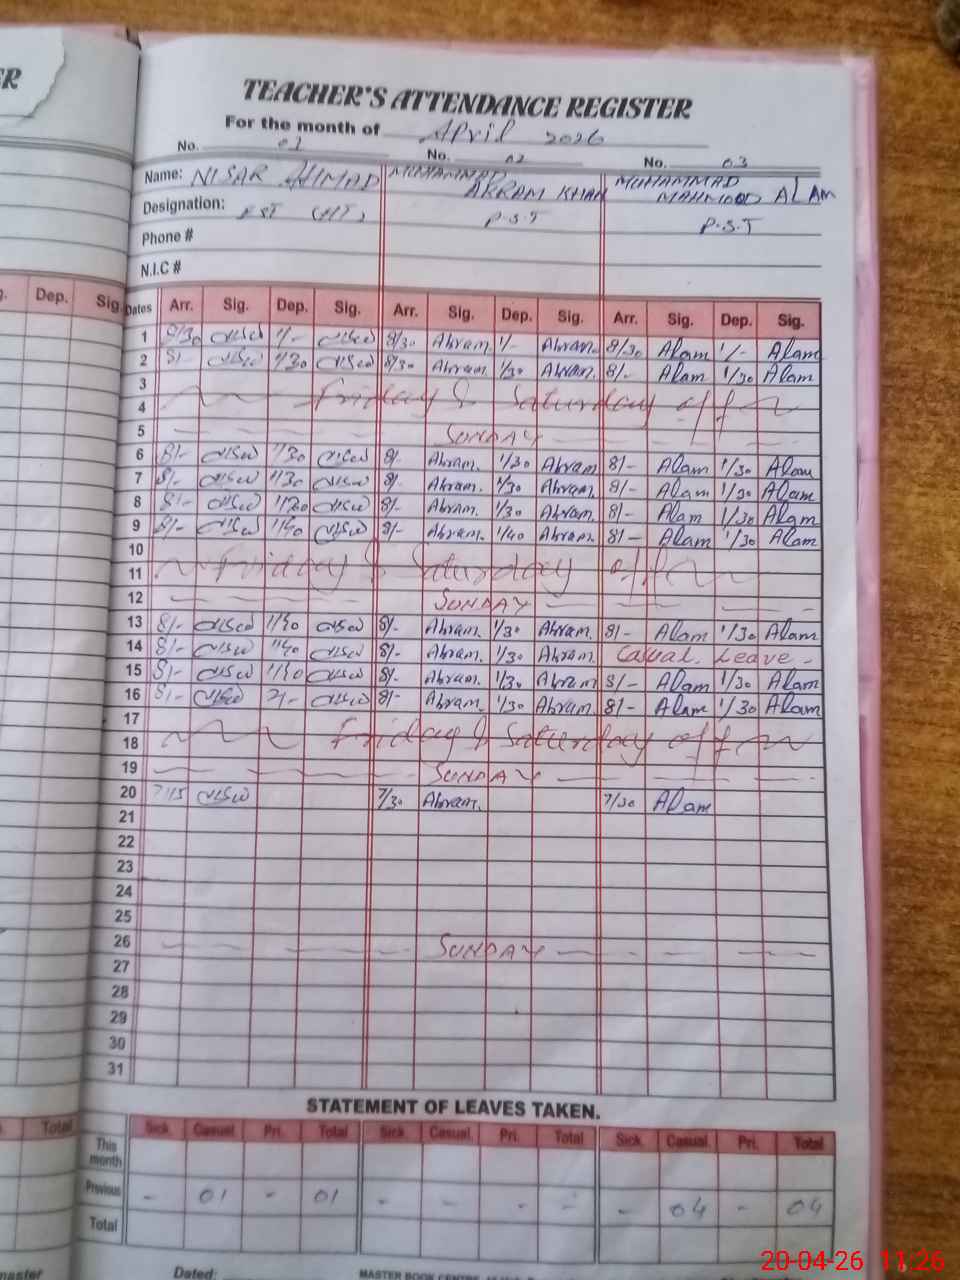 ER
TEACHER'S ATTENDANCE REGISTER
For the month of April 2026
No. 01 No. 02 No. 03
Name: NISAR AHMAD MUHAMMAD AKRAM KHAN MUHAMMAD MAHMOOD ALAM
Designation: PST (HT) P.S.T P.S.T
Phone #
N.I.C #
Dep. Sig. Dates Arr. Sig. Dep. Sig. Arr. Sig. Dep. Sig. Arr. Sig. Dep. Sig.
1 8/30 1/- 8/30 Akram 1/- Akram 8/30 Alam 1/- Alam
2 8/- 1/30 8/30 Akram 1/30 Akram 8/- Alam 1/30 Alam
3
4 Friday & Saturday off
5 SUNDAY
6 8/- 1/30 8/- Akram 1/30 Akram 8/- Alam 1/30 Alam
7 8/- 1/30 8/- Akram 1/30 Akram 8/- Alam 1/30 Alam
8 8/- 8/- Akram 1/30 Akram 8/- Alam 1/30 Alam
9 8/- 1/40 8/- Akram 1/40 Akram 8/- Alam 1/30 Alam
10
11 Friday & Saturday off
12 SUNDAY
13 8/- 8/- Akram 1/30 Akram 8/- Alam 1/30 Alam
14 8/- 1/40 8/- Akram 1/30 Akram Casual Leave -
15 8/- 8/- Akram 1/30 Akram 8/- Alam 1/30 Alam
16 8/- 2/- 8/- Akram 1/30 Akram 8/- Alam 1/30 Alam
17
18 Friday & Saturday off
19 SUNDAY
20 7/15 7/30 Akram 7/30 Alam
21
22
23
24
25
26 SUNDAY
27
28
29
30
31
STATEMENT OF LEAVES TAKEN.
Total Sick Casual Pri. Total Sick Casual Pri. Total Sick Casual Pri. Total
This month
Previous - 01 - 01 - - - - - 04 - 04
Total
master Dated: MASTER BOOK CENTRE
20-04-26 11:26